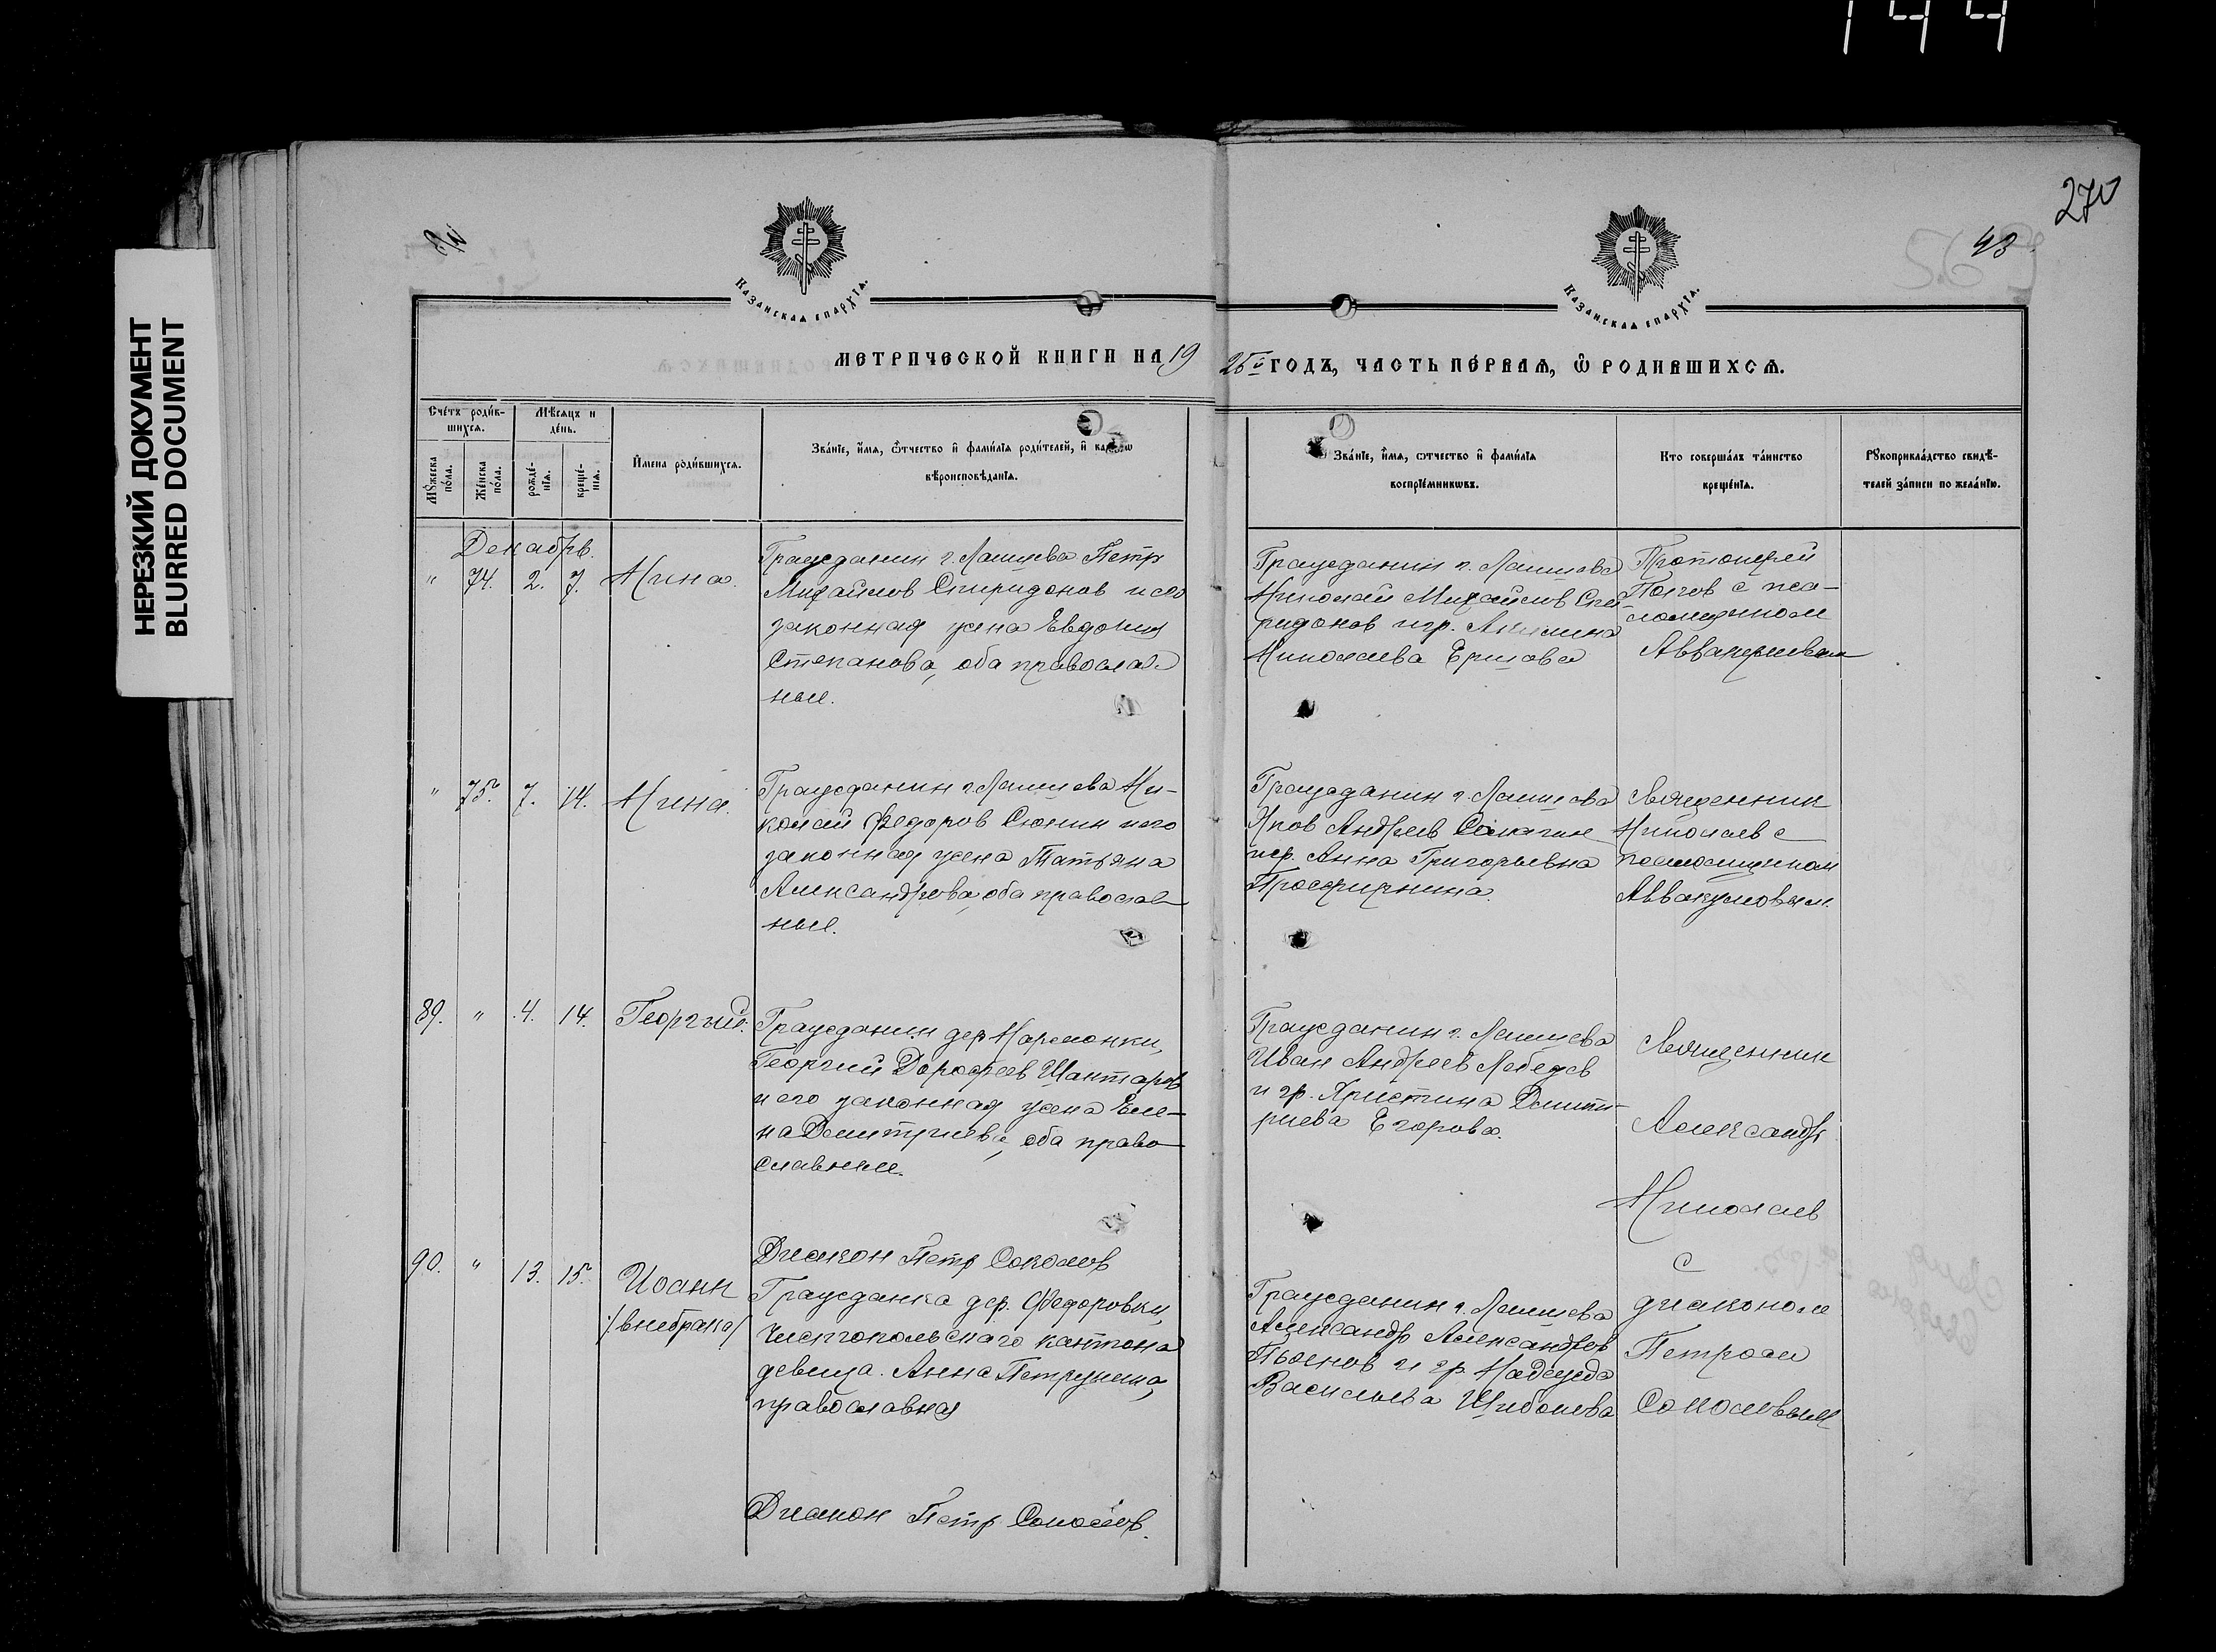 144
НЕРЕЗКИЙ ДОКУМЕНТ
BLURRED DOCUMENT
270
43
Казанская епархїѧ.
Казанская епархїѧ.
МЕТРИЧЕСКОЙ КНИГИ НА 1925й ГОДЪ, ЧАСТЬ ПЕРВАЯ, Ѡ РОДИВШИХСЯ.
Счетъ родившихся.
Мѣсяцъ и день.
Мужеска пола.
Женска пола.
рожденїя.
крещенїя.
Имена родившихся.
Званїе, имя, отчество и фамилїя родителей, и какогѡ
вѣроисповѣданїя.
Званїе, имя, отчество и фамилїя
воспрїемниковъ.
Кто совершалъ таинство
крещенїя.
Рукоприкладство свидѣ-
телей записи по желанїю.
Декабрь.
" 74. 2. 7. Нина.
Гражданин г. Лаишева Петр
Михайлов Спиридонов и его
законная жена Евдокия
Степанова, оба православ-
ные.
Гражданин г. Лаишева
Николай Михайлов Спи-
ридонов и гр.
Николаева Ершова
Протоиерей
Попов с пса-
ломщиком
" 75. 7. 14. Нина.
Гражданин г. Лаишева Ни-
колай Федоров Сюнин и его
законная жена Татьяна
Александрова, оба православ-
ные.
Гражданин г. Лаишева
Яков Андреев
и гр. Анна Григорьевна
Просфирнина.
Священник
Николаев с
псаломщиком
Аввакумовым.
89. " 4. 14. Георгий.
Гражданин дер. Нармонки,
Георгий Дорофеев Шантаров
и его законная жена Еле-
на Димитриева, оба право-
славные.
Диакон Петр Соколов
Гражданин г. Лаишева
Иван Андреев Лебедев
и гр. Христина Димит-
риева Егорова.
Священник
Александр
Николаев
с
диаконом
Петром
Соколовым
90. " 13. 15. Иоанн
/внебрака/
Гражданка дер. Федоровки,
Чистопольского кантона
девица Анна Петрунина,
православная
Гражданин г. Лаишева
Александр Александров
Пьянов и гр. Надежда
Васильева Шибонева
Диакон Петр Соколов.